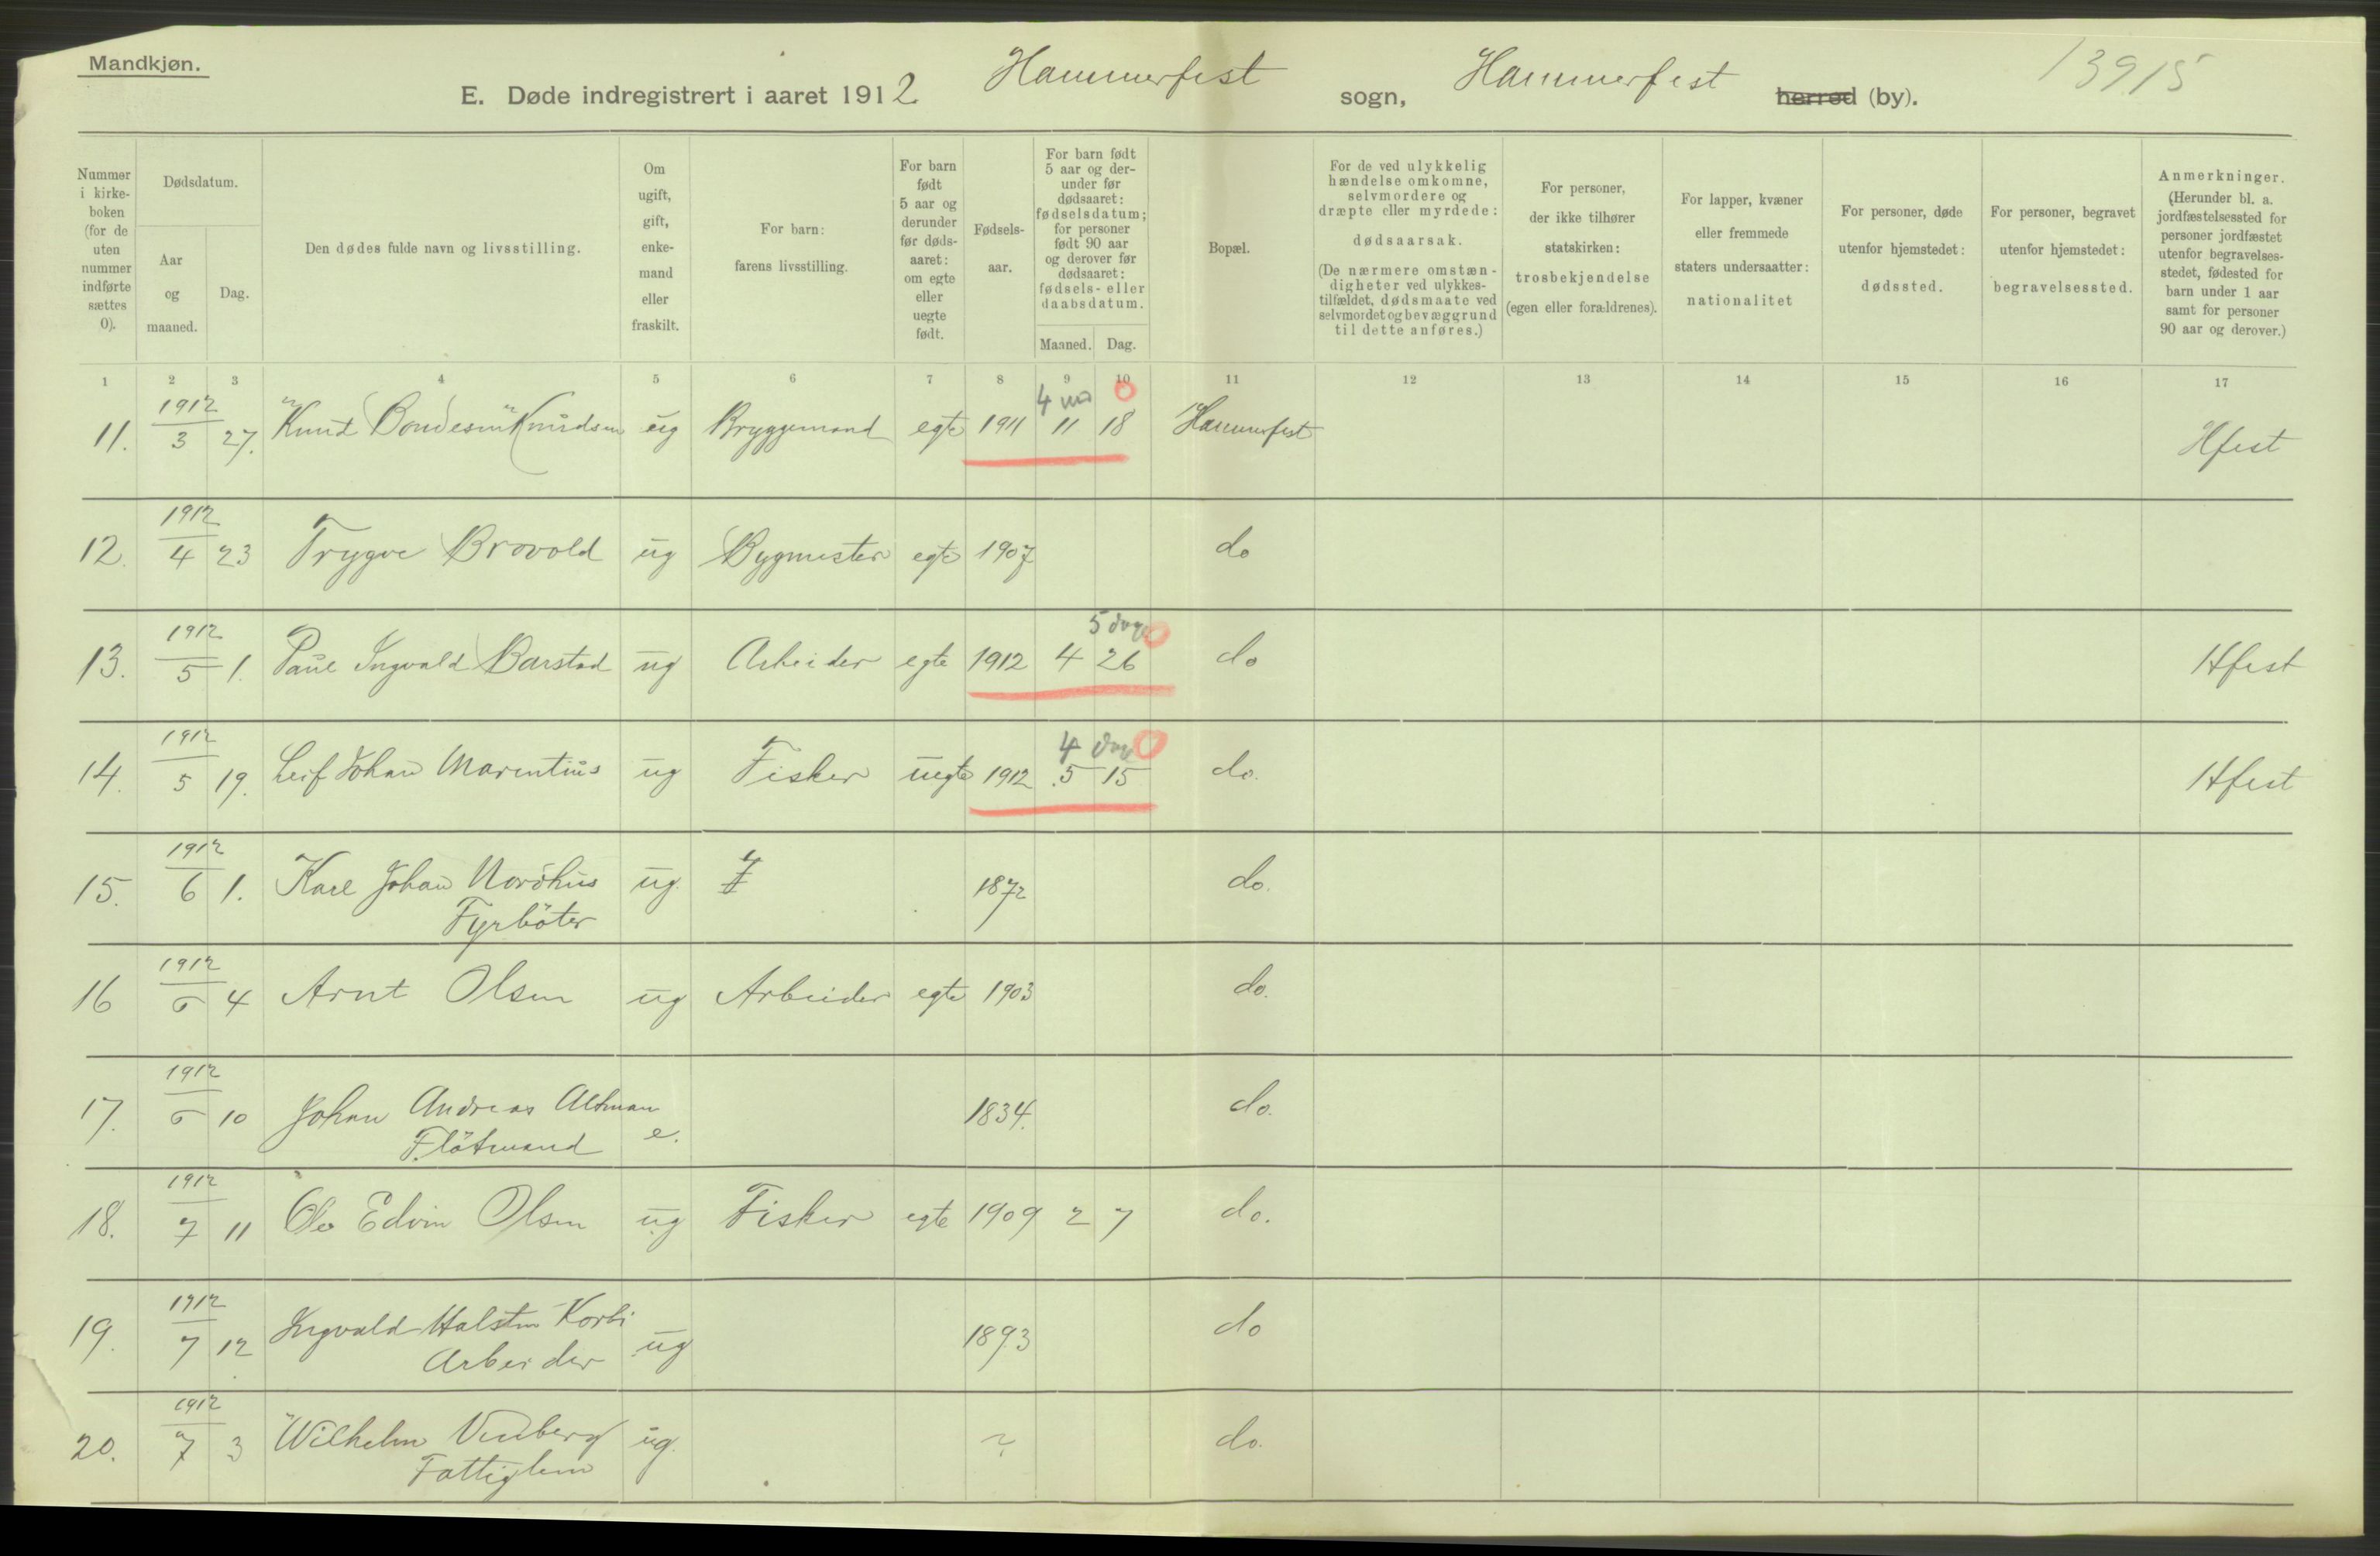 Mandkjøn.
E. Døde indregistrert i aaret 1912 Hammerfest sogn, Hammerfest herred (by).
13915
Nummer i kirke-boken (for de uten nummer indførte sættes 0).
Dødsdatum.
Aar og maaned.
Dag.
Den dødes fulde navn og livsstilling.
Om ugift, gift, enke-mand eller fraskilt.
For barn: farens livsstilling.
For barn født 5 aar og derunder før døds-aaret: om egte eller uegte født.
Fødsels-aar.
For barn født 5 aar og der-under før dødsaaret: fødselsdatum; for personer født 90 aar og derover før dødsaaret: fødsels- eller daabsdatum.
Maaned. Dag.
Bopæl.
For de ved ulykkelig hændelse omkomne, selvmordere og dræpte eller myrdede: dødsaarsak. (De nærmere omstæn-digheter ved ulykkes-tilfældet, dødsmaate ved selvmordet og bevæggrund til dette anføres.)
For personer, der ikke tilhører statskirken: trosbekjendelse (egen eller forældrenes).
For lapper, kvæner eller fremmede staters undersaatter: nationalitet
For personer, døde utenfor hjemstedet: dødssted.
For personer, begravet utenfor hjemstedet: begravelsessted.
Anmerkninger. (Herunder bl. a. jordfæstelsessted for personer jordfæstet utenfor begravelses-stedet, fødested for barn under 1 aar samt for personer 90 aar og derover.)
1 2 3 4 5 6 7 8 9 10 11 12 13 14 15 16 17
4 md 0
11. 1912 3 27. "Knut Bondesen" Knudsen ug Bryggemand egte 1911 11 18 Hammerfest Hfest
12. 1912 4 23 Trygve Brovold ug Bygmester egte 1907 do
5 dage 0
13. 1912 5 1. Paul Ingvald Barstad ug Arbeider egte 1912 4 26 do Hfest
4 dage 0
14. 1912 5 19. Leif Johan Marentius ug Fisker uegte 1912 5 15 do. Hfest
15. 1912 6 1. Karl Johan Nordhus ug. 1872 do.
Fyrböter
16 1912 6 4 Arnt Olsen ug Arbeider egte 1903 do.
17. 1912 6 10 Johan Andreas Altman e. 1834. do.
Flötmand
18. 1912 7 11 Ole Edvin Olsen ug Fisker egte 1909 2 7 do.
19. 1912 7 12 Ingvald Halsten Korbi ug 1893 do
Arbeider
20. 1912 7 3 Wilhelm Vinberg ug. ? do.
Fattiglem